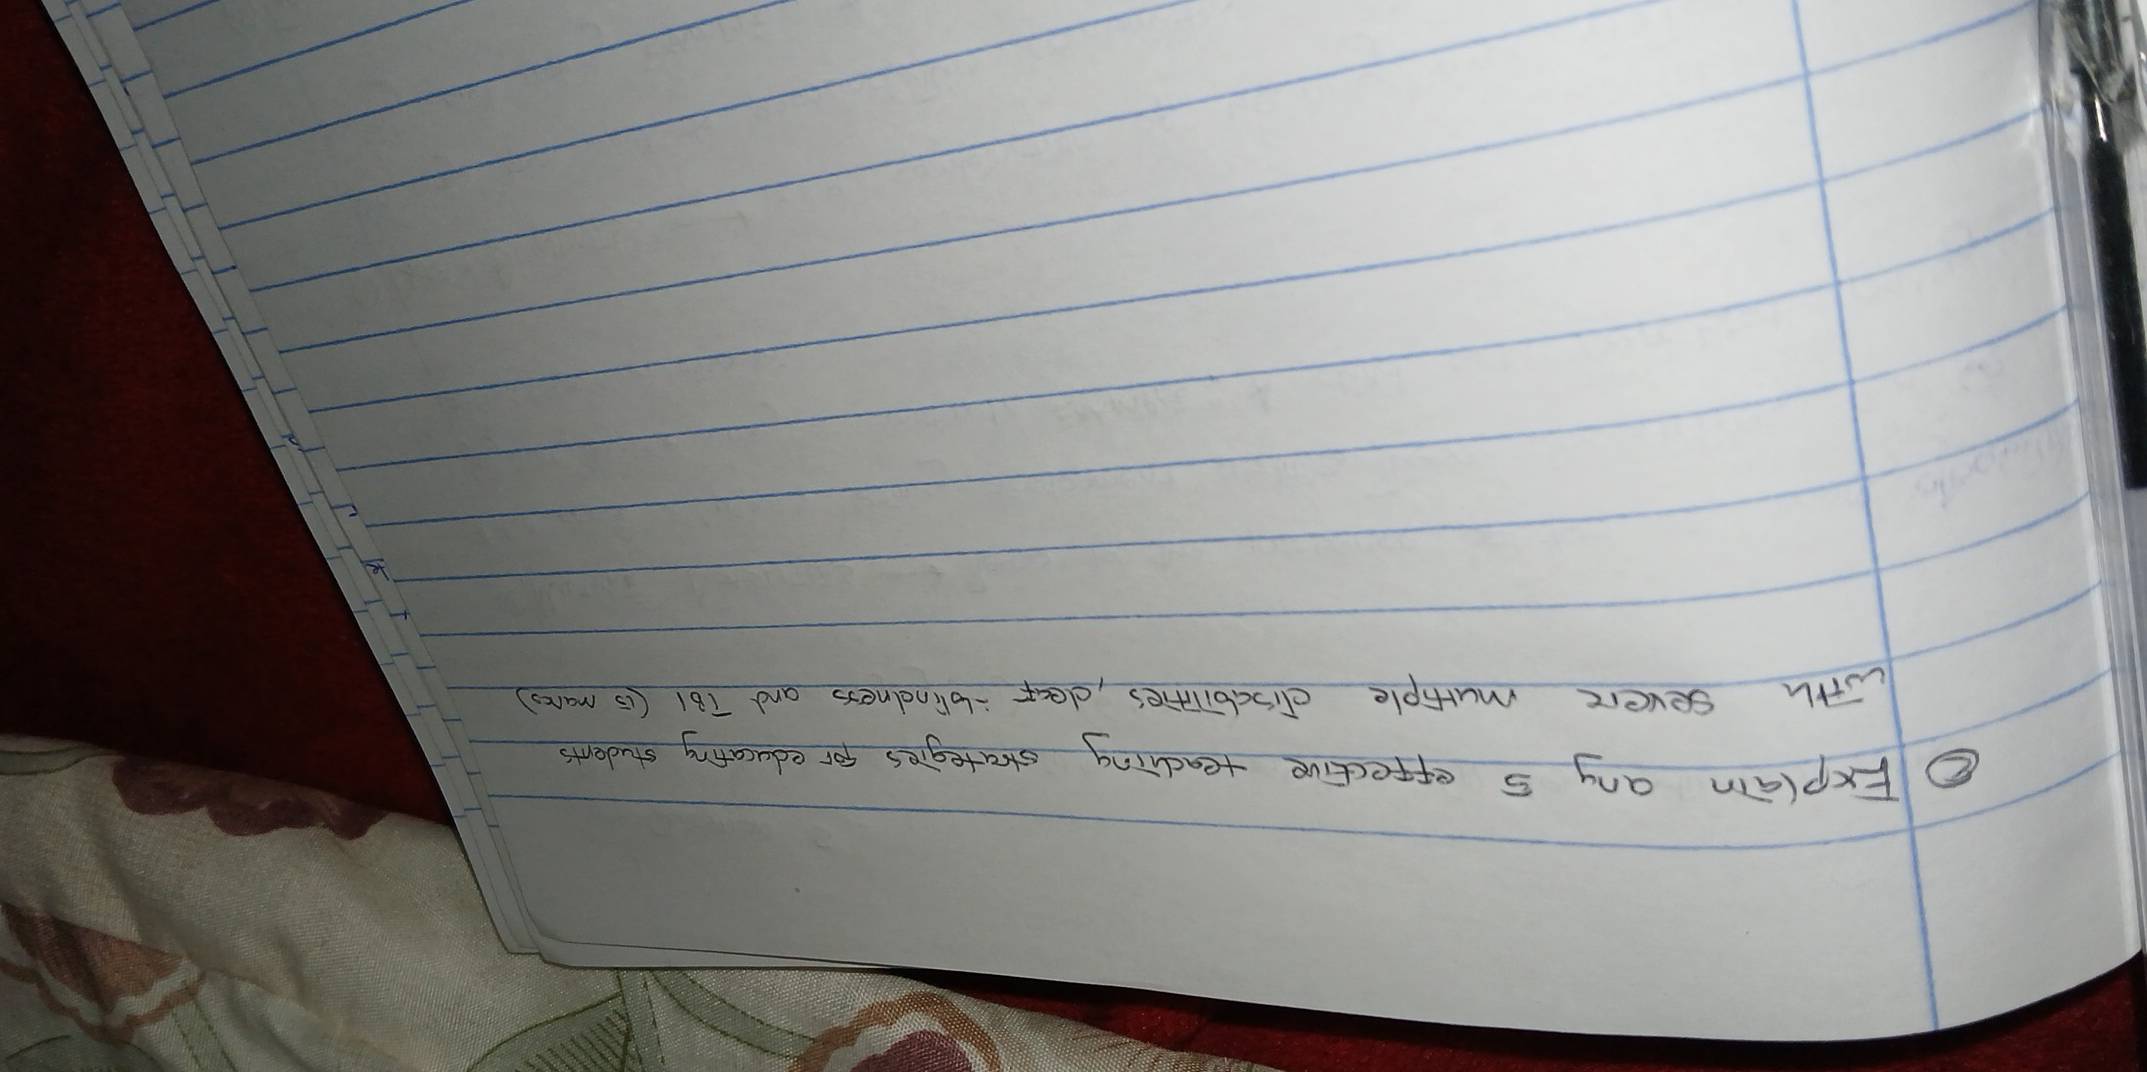 Explain any 5 effective teaching strategies for educating students
with severe multiple disabilities, deaf-blindness and TBI (15 marks)